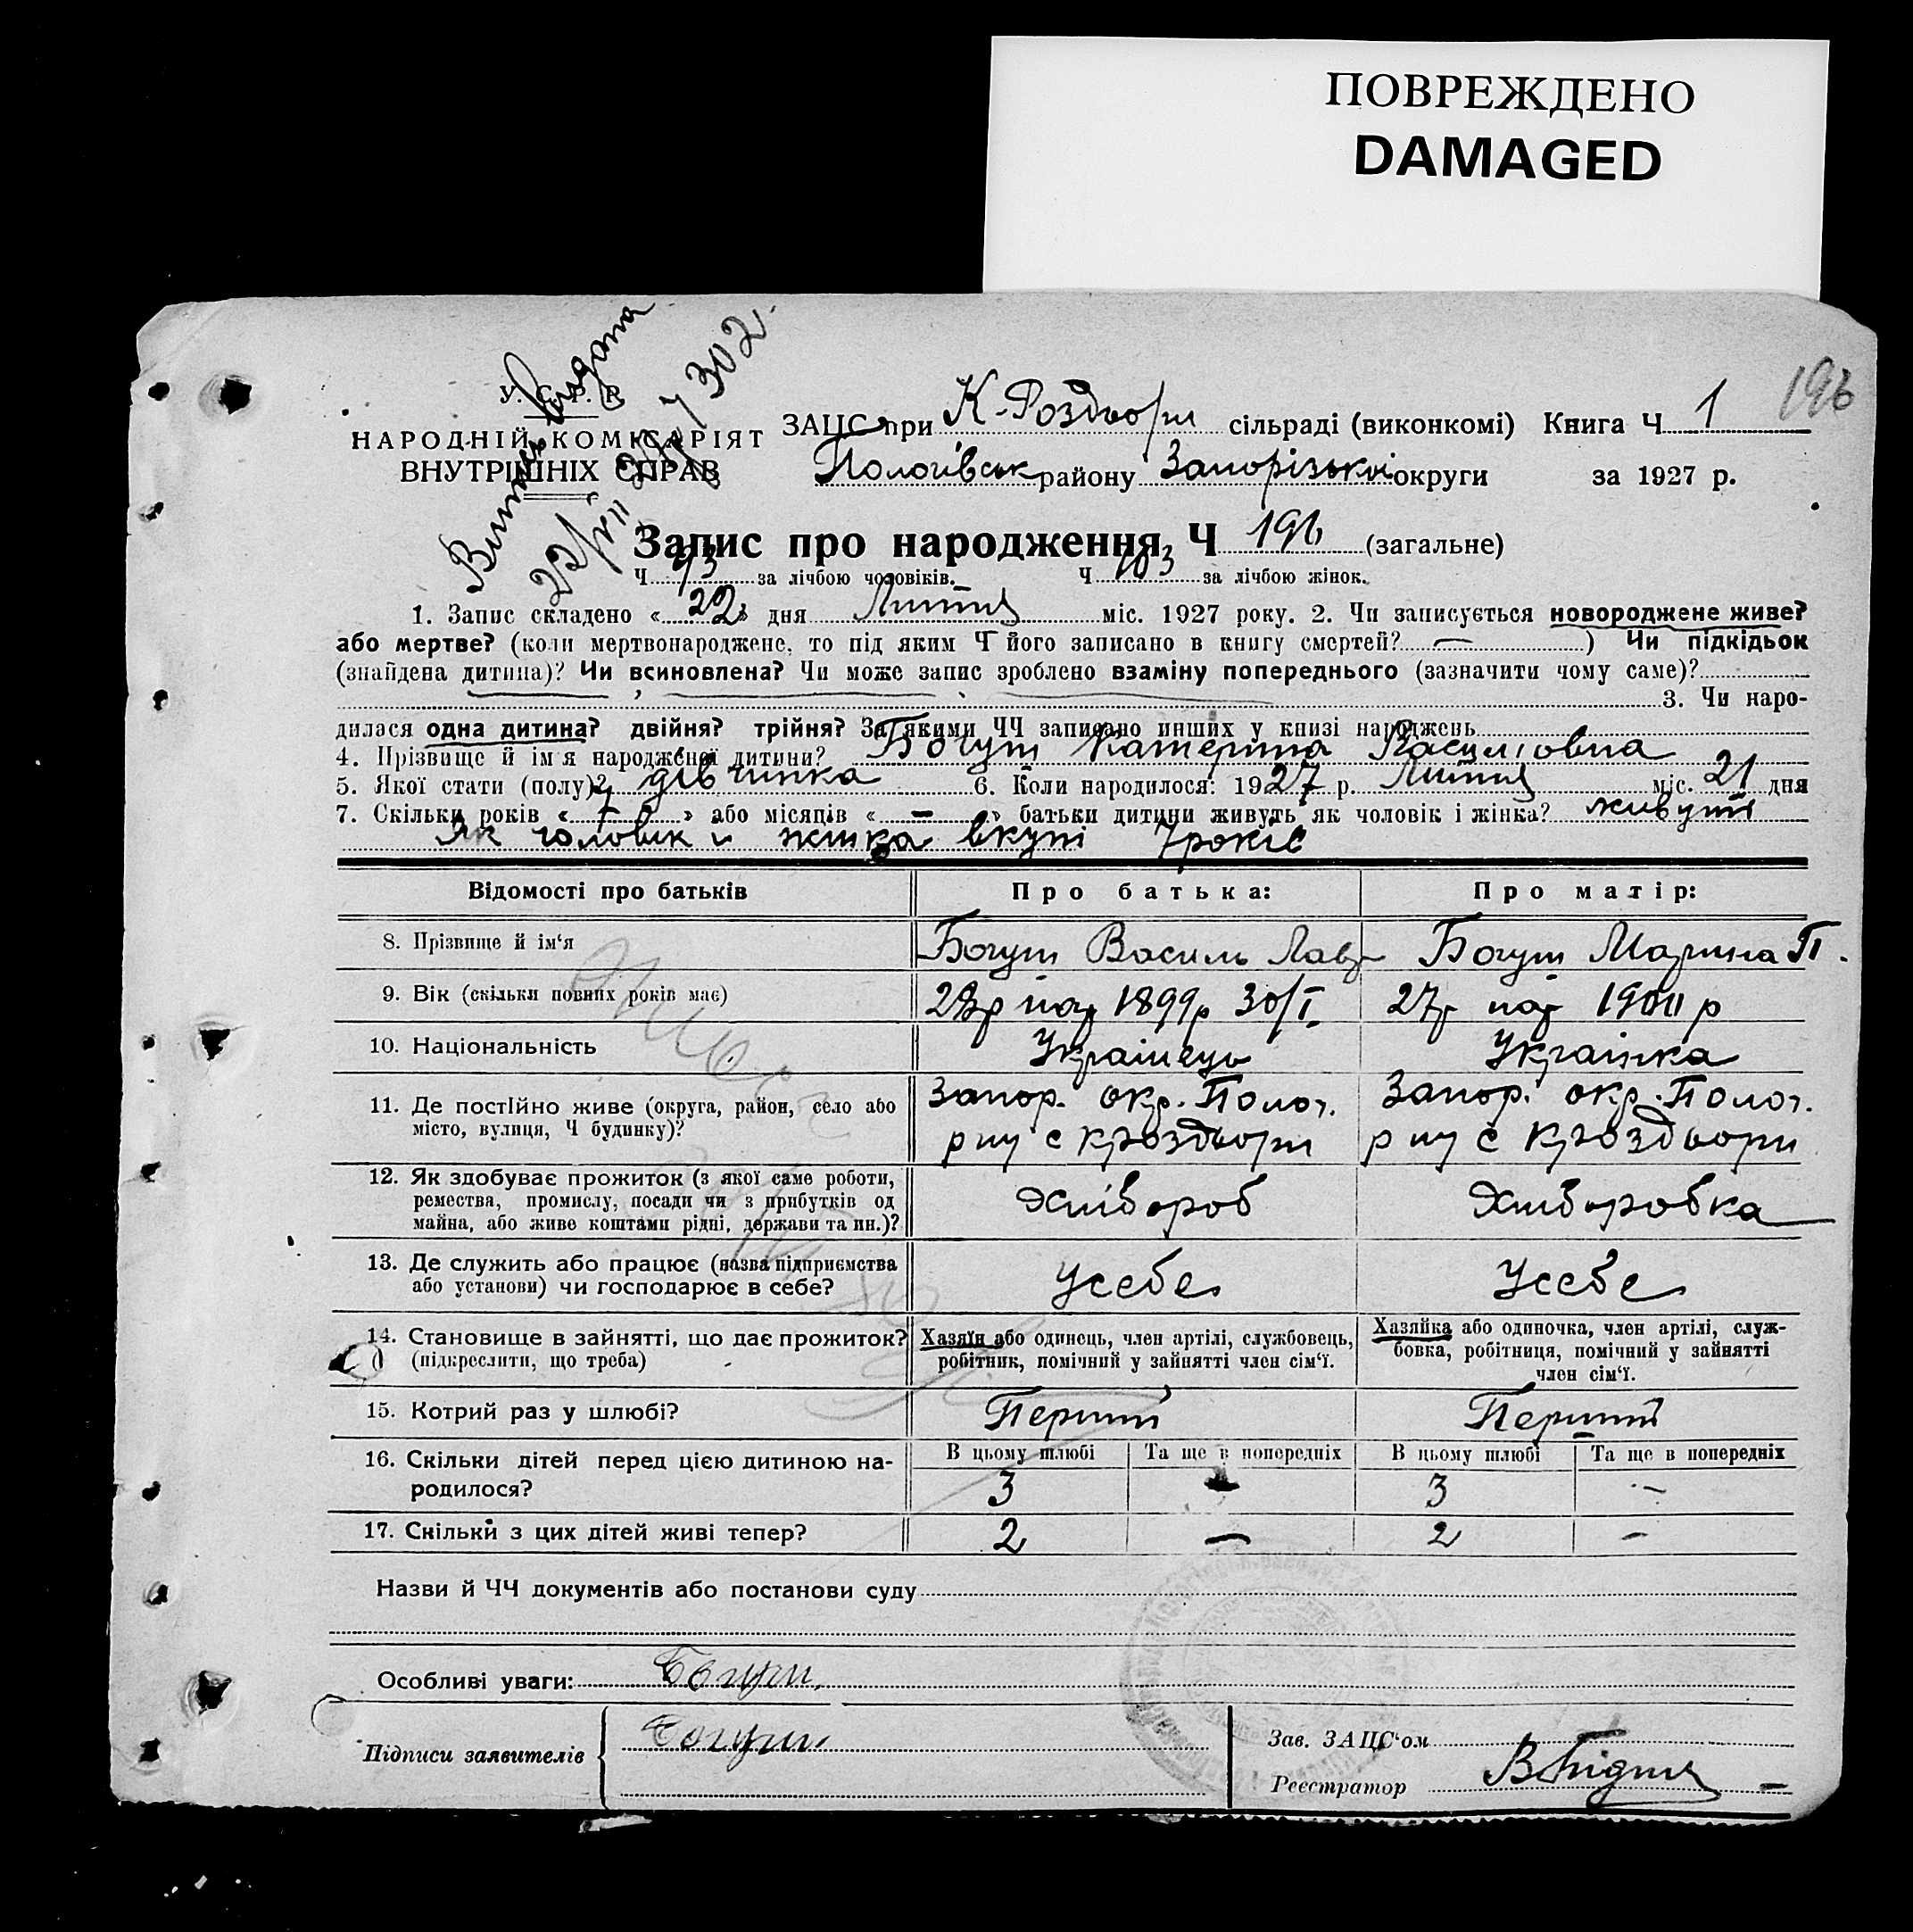 ПОВРЕЖДЕНО
DAMAGED
196
У. С. Р. Р.
НАРОДНІЙ КОМІСАРІЯТ
ВНУТРІШНІХ СПРАВ
Витяг видана
22/VII 27 7302
ЗАЦС при К-Роздори сільраді (виконкомі) Книга Ч 1
Пологівськ району Запорізької округи за 1927 р.
Запис про народження Ч 196 (загальне)
Ч 93 за лічбою чоловіків. Ч 103 за лічбою жінок.
1. Запис складено «22» дня Липня міс. 1927 року. 2. Чи записується новороджене живе?
або мертве? (коли мертвонароджене, то під яким Ч його записано в книгу смертей? — ) Чи підкідьок
(знайдена дитина)? Чи всиновлена? Чи може запис зроблено взаміну попереднього (зазначити чому саме)?
3. Чи наро-
дилася одна дитина? двійня? трійня? За якими ЧЧ записано инших у книзі народжень
4. Прізвище й ім'я народженої дитини? Богут Катерина Василіовна
5. Якої стати (полу)? дівчинка 6. Коли народилося: 1927 р. Липня міс. 21 дня
7. Скільки років « 7 » або місяців « — » батьки дитини живуть як чоловік і жінка? живуть
Як чоловік и жинка вкупі 7 років
Відомості про батьків Про батька: Про матір:
8. Прізвище й ім'я Богут Василь Лавр Богут Марина П.
9. Вік (скільки повних років має) 28р нар 1899р 30/I. 27р нар 1900 р
10. Національність Українець Українка
11. Де постійно живе (округа, район, село або Запор. окр. Полог. Запор. окр. Полог.
місто, вулиця, Ч будинку)? р ну с Кроздори р ну с Кроздори
12. Як здобуває прожиток (з якої саме роботи,
ремества, промислу, посади чи з прибутків од Хлібороб Хліборобка
майна, або живе коштами рідні, держави та ин.)?
13. Де служить або працює (назва підприємства
або установи) чи господарює в себе? Усебе Усебе
14. Становище в зайнятті, що дає прожиток? Хазяїн або одинець, член артілі, службовець, Хазяйка або одиночка, член артілі, служ-
(підкреслити, що треба) робітник, помічний у зайнятті член сім'ї. бовка, робітниця, помічний у зайнятті
член сім'ї.
15. Котрий раз у шлюбі? Перший Перший
16. Скільки дітей перед цією дитиною на- В цьому шлюбі Та ще в попередніх В цьому шлюбі Та ще в попередніх
родилося? 3 — 3 —
17. Скільки з цих дітей живі тепер? 2 — 2 —
Назви й ЧЧ документів або постанови суду
Особливі уваги: Богут
Підписи заявителів Богут
Зав. ЗАЦС'ом
Реєстратор